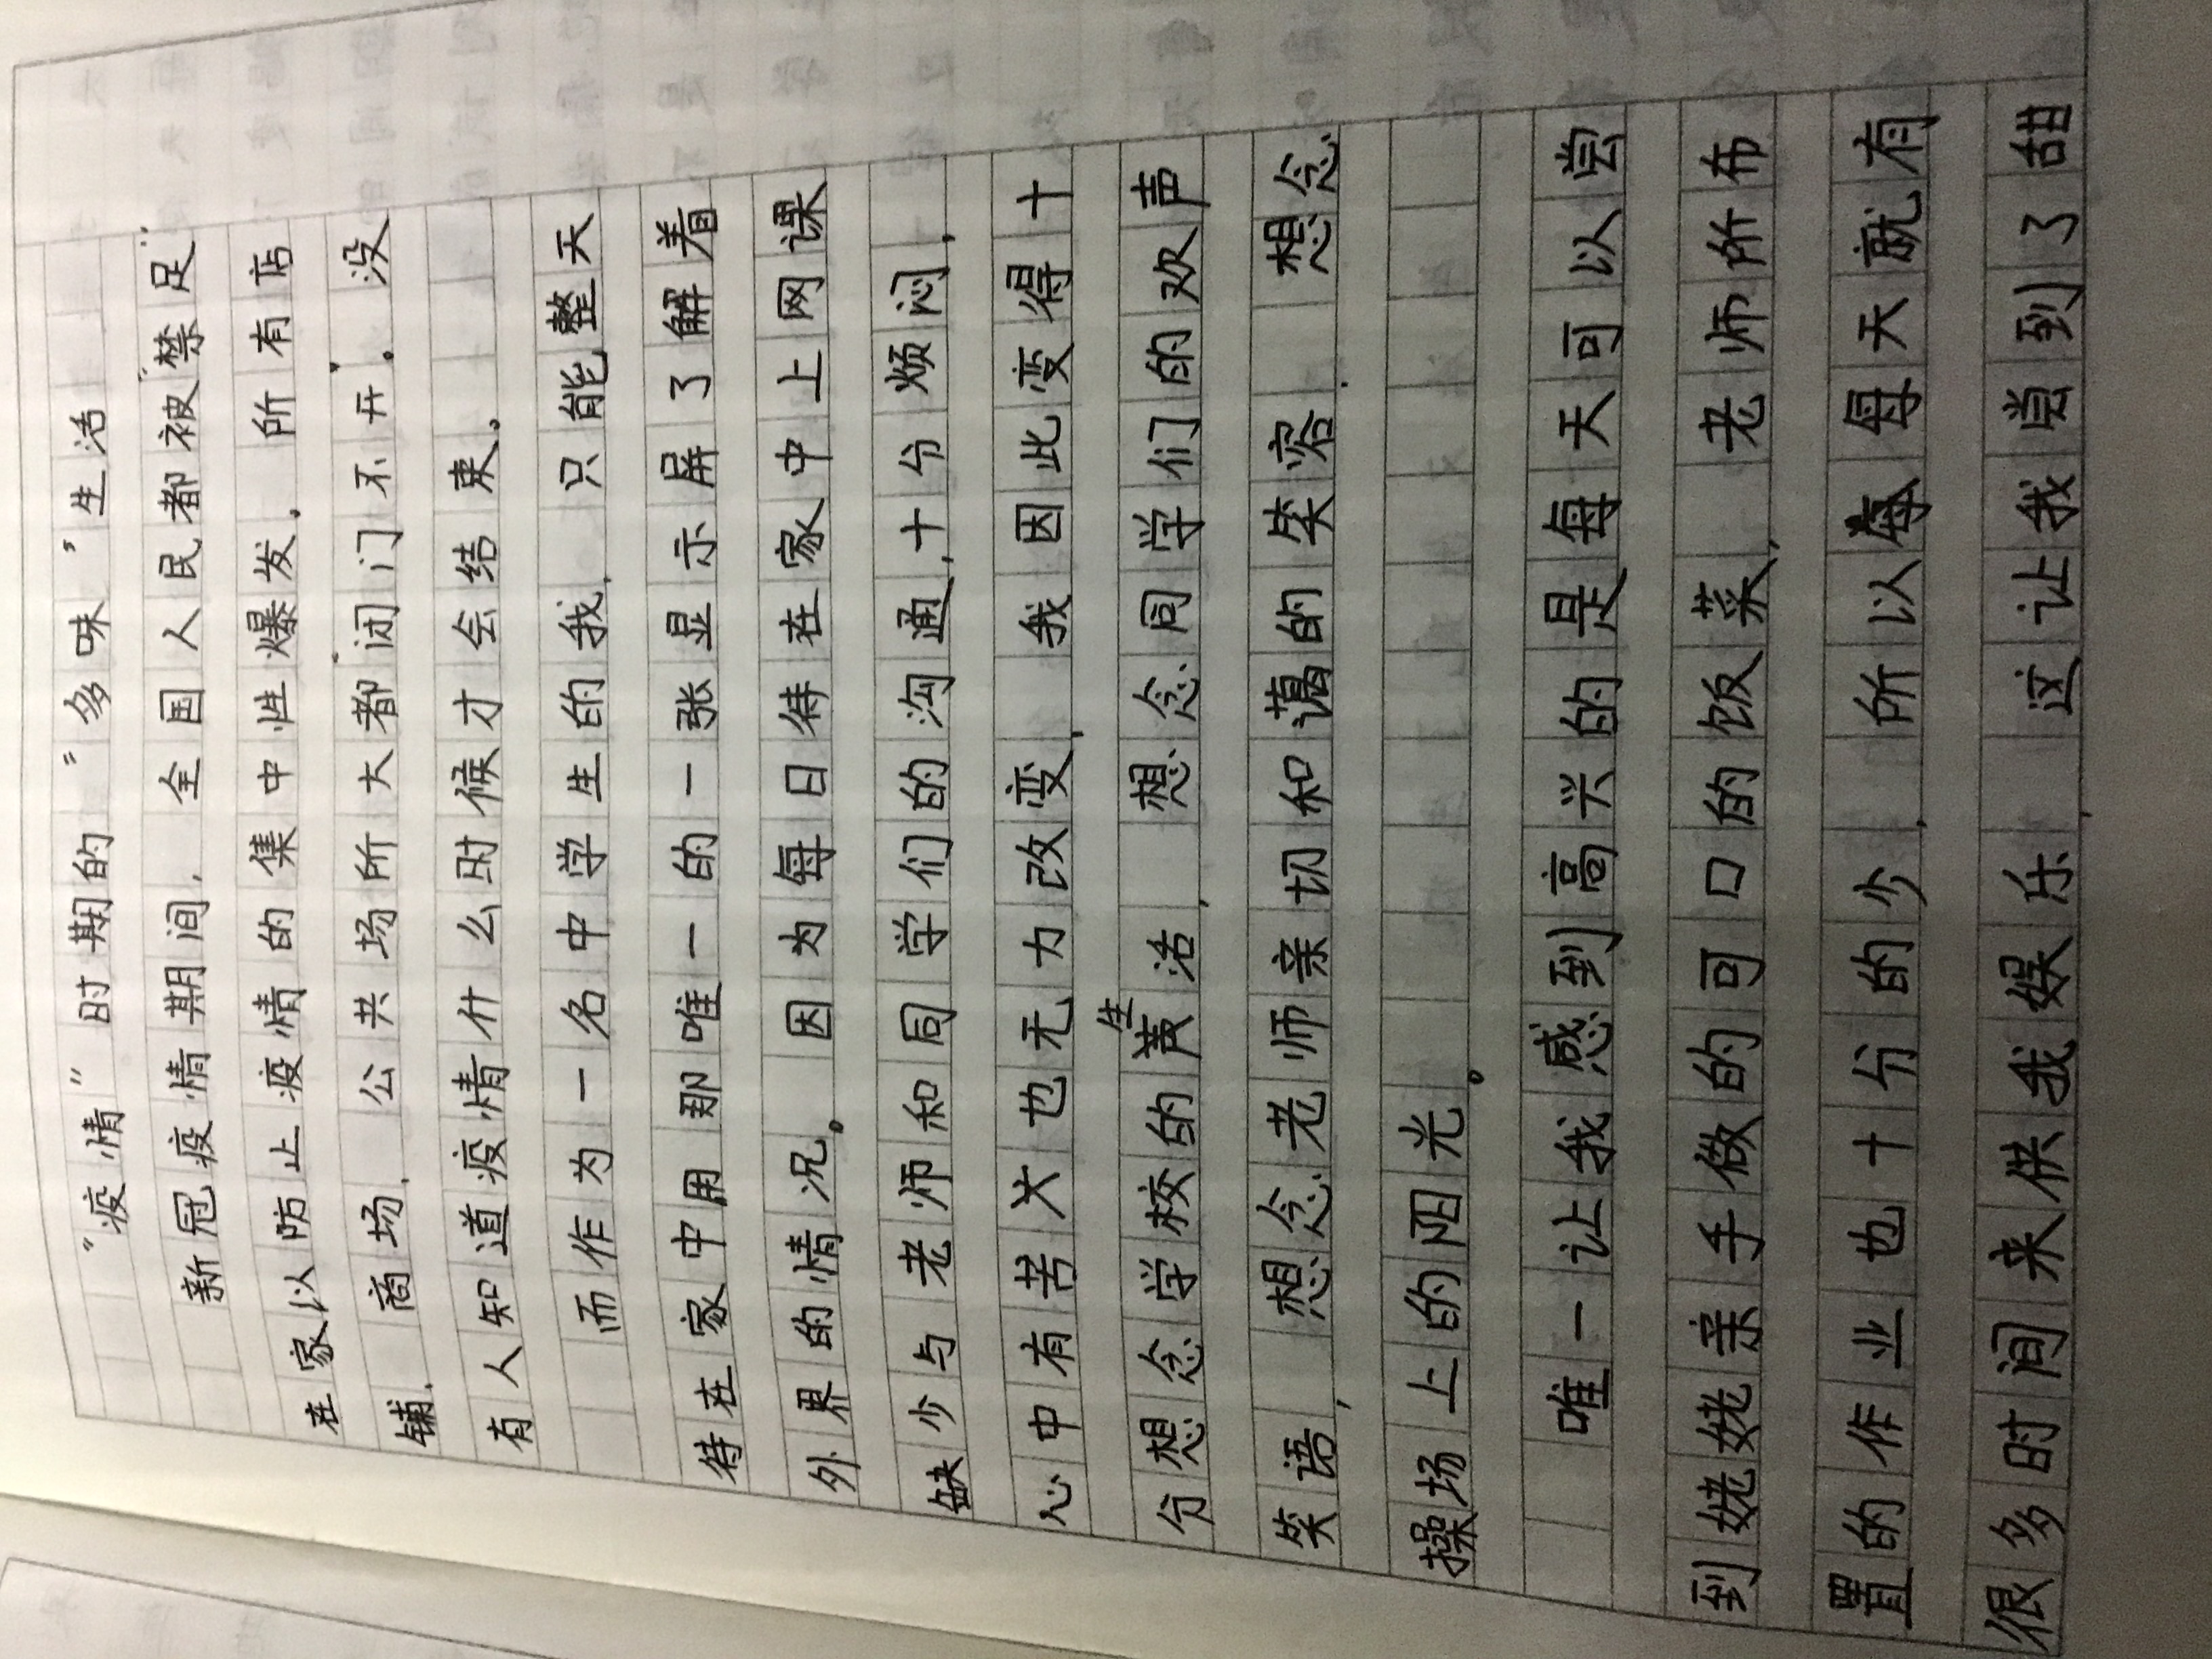 “疫情”时期的“多味”生活
新冠疫情期间，全国人民都被“禁足”
在家以防止疫情的集中性爆发，所有店
铺，商场，公共场所大都“闭门不开”。没
有人知道疫情什么时候才会结束。
而作为一名中学生的我，只能整天
待在家中用那唯一的一张显示屏了解着
外界的情况。因为每日待在家中上网课
缺少与老师和同学们的沟通，十分烦闷，
心中有苦火也无力改变，我因此变得十
分想念学校的生活，想念同学们的欢声
笑语，想念老师亲切和蔼的笑容，想念
操场上的阳光。
唯一让我感到高兴的是每天可以尝
到姥姥亲手做的可口的饭菜，老师所布
置的作业也十分的少，所以每天就有
很多时间来供我娱乐，这让我尝到了甜